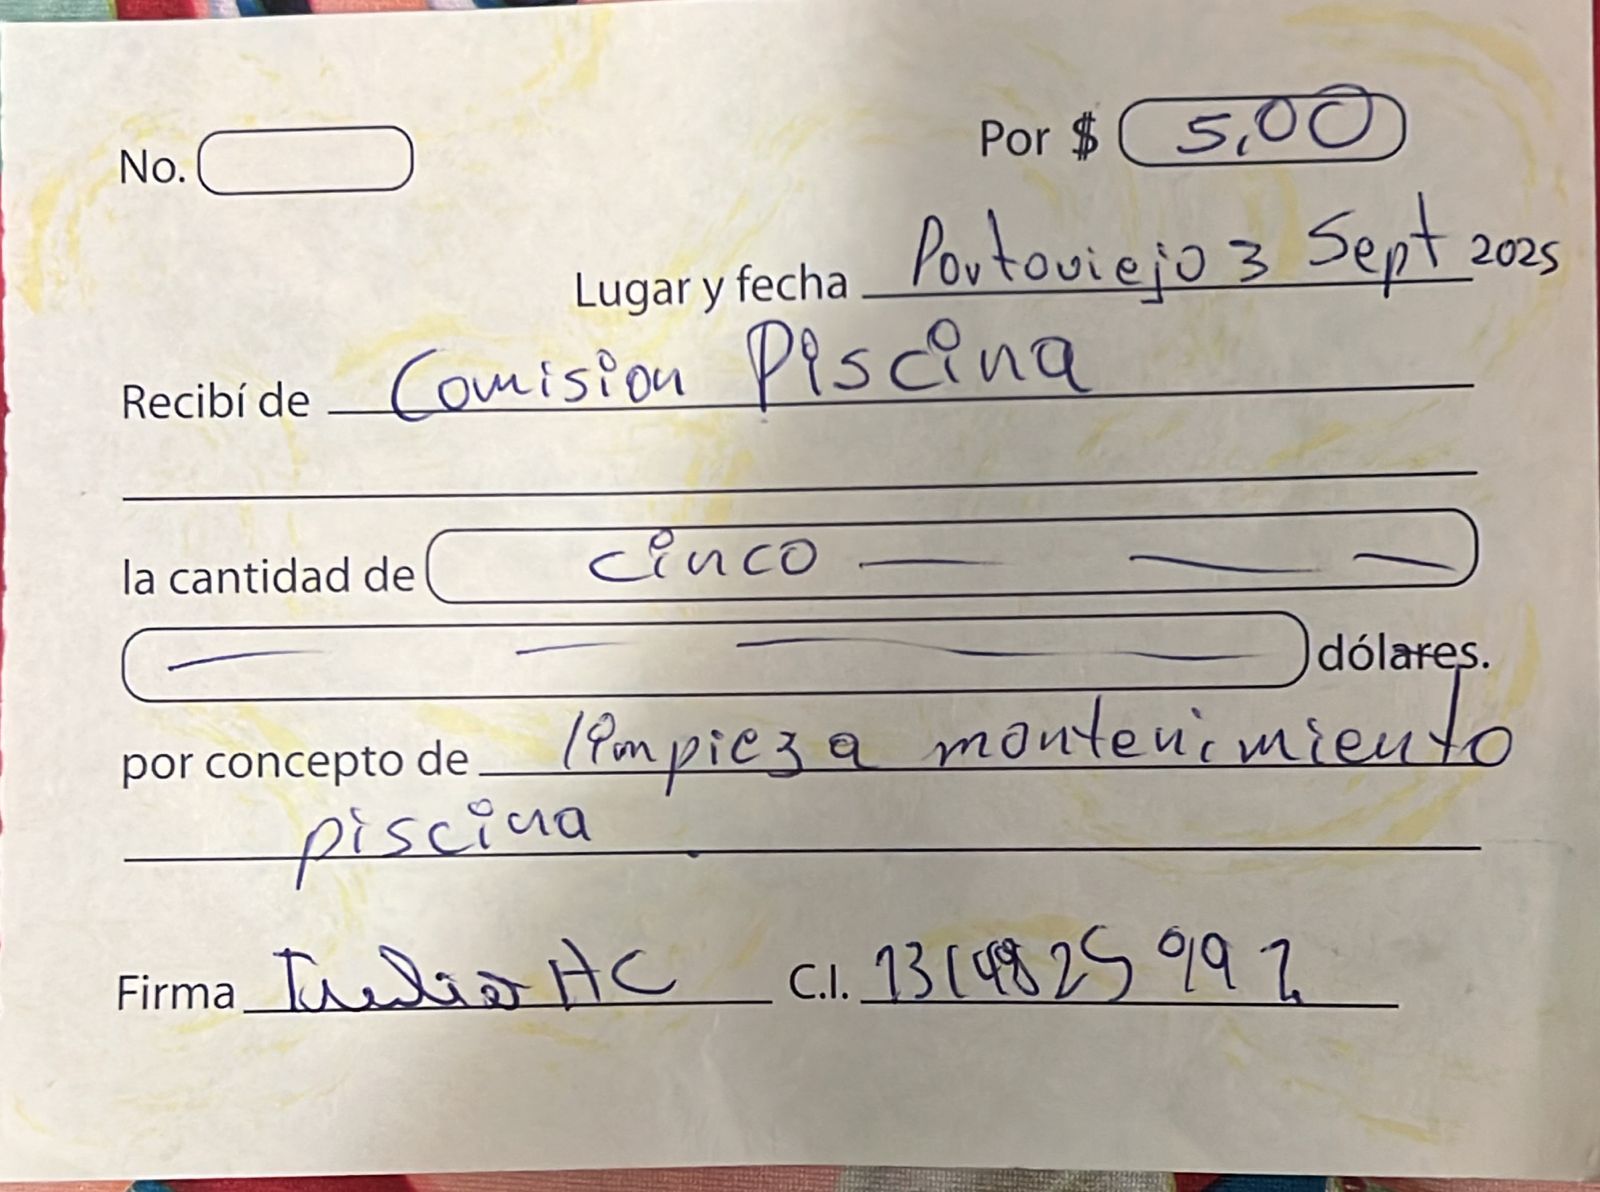 No.
Por $ 5,00
Lugar y fecha Portoviejo 3 Sept 2025
Recibí de Comision Piscina
la cantidad de cinco
dólares.
por concepto de limpieza mantenimiento
piscina
Firma HC C.I.